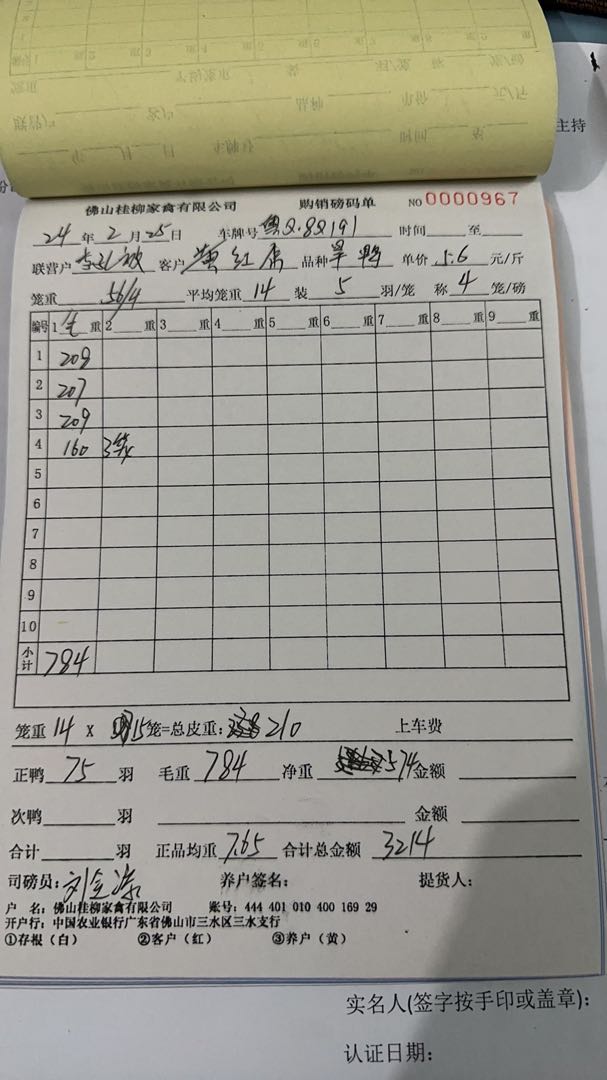 主持
佛山桂柳家禽有限公司 购销磅码单 NO 0000967
24 年 2 月 25 日 车牌号 粤Q·8Q191 时间 至
联营户 客户 黄红屌 品种 旱鸭 单价 5.6 元/斤
笼重 56/4 平均笼重 14 装 5 羽/笼 称 4 笼/磅
编号 1 毛 重 2 重 3 重 4 重 5 重 6 重 7 重 8 重 9 重
1 209
2 207
3 209
4 160 3笼
5
6
7
8
9
10
小计 784
笼重 14 x 15 笼=总皮重: 210 上车费
正鸭 75 羽 毛重 784 净重 574 金额
次鸭 羽 金额
合计 羽 正品均重 7.65 合计总金额 3214
司磅员: 养户签名: 提货人:
户 名: 佛山桂柳家禽有限公司 账号: 444 401 010 400 169 29
开户行: 中国农业银行广东省佛山市三水区三水支行
①存根（白） ②客户（红） ③养户（黄）
实名人(签字按手印或盖章):
认证日期: